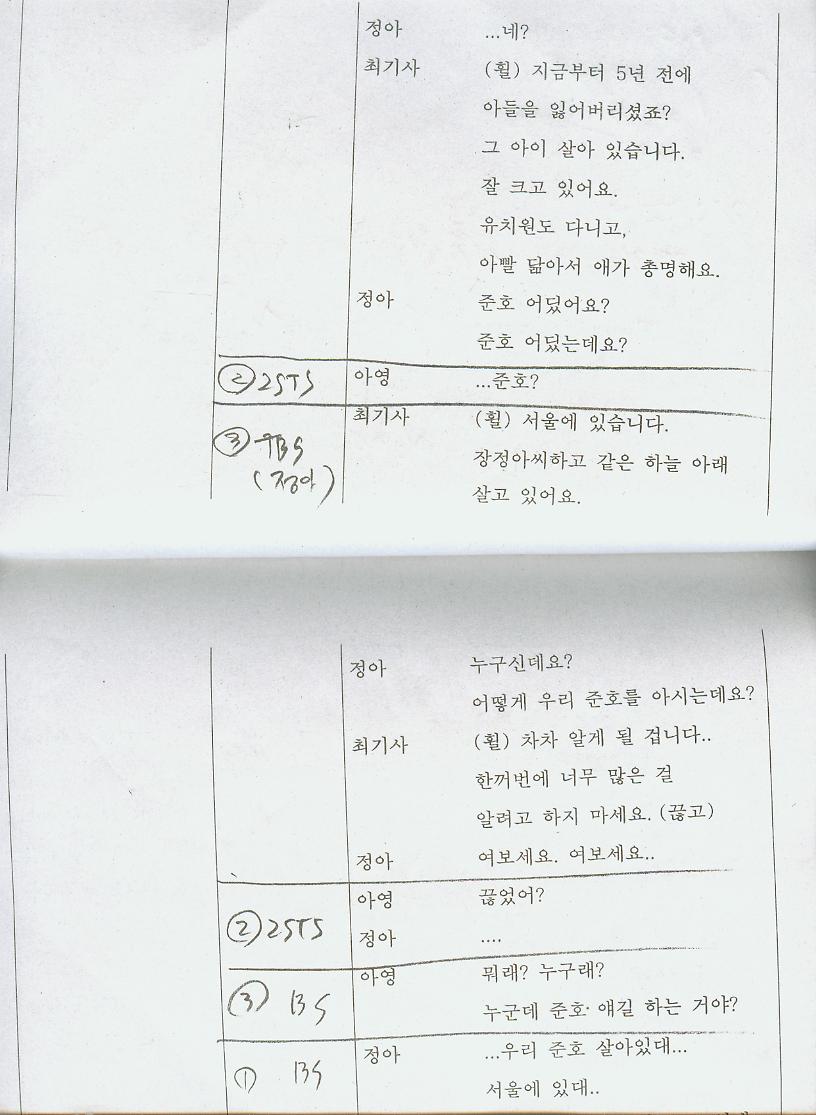 정아 ...네?
최기사 (휠) 지금부터 5년 전에
아들을 잃어버리셨죠?
그 아이 살아 있습니다.
잘 크고 있어요.
유치원도 다니고,
아빨 닮아서 애가 총명해요.
정아 준호 어딨어요?
준호 어딨는데요?
② 2STS 아영 ...준호?
최기사 (휠) 서울에 있습니다.
③ BS 장정아씨하고 같은 하늘 아래
(정아) 살고 있어요.
정아 누구신데요?
어떻게 우리 준호를 아시는데요?
최기사 (휠) 차차 알게 될 겁니다..
한꺼번에 너무 많은 걸
알려고 하지 마세요. (끊고)
정아 여보세요. 여보세요..
아영 끊었어?
② 2STS 정아 ....
아영 뭐래? 누구래?
③ BS 누군데 준호 얘길 하는 거야?
정아 ...우리 준호 살아있대...
① BS 서울에 있대..